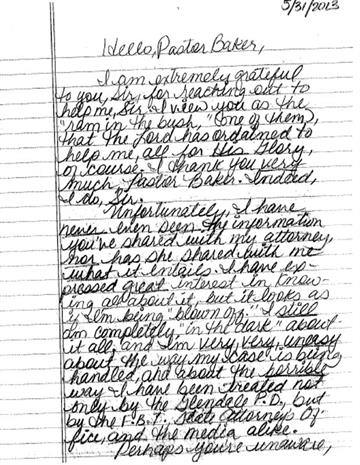 5/31/2013
Hello, Pastor Baker,
I am extremely grateful
to you, Sir, for reaching out to
help me, Sir. I view you as the
"ram in the bush," (one of them),
that the Lord has ordained to
help me, all for His Glory,
of course. I thank you very
much Pastor Baker. Indeed,
I do, Sir.
Unfortunately, I have
never even seen the information
you've shared with my attorney,
nor has she shared with me
what it entails. I have ex-
pressed great interest in know-
ing all about it, but it looks as
if I'm being "blown off." I still
am completely "in the dark" about
it all, and I'm very, very, uneasy
about the way my case is being
handled, and about the horrible
way I have been treated not
only by the Glendale P.D., but
by the F.B.I., State Attorneys Of-
fice, and the media alike.
Perhaps you're unaware,